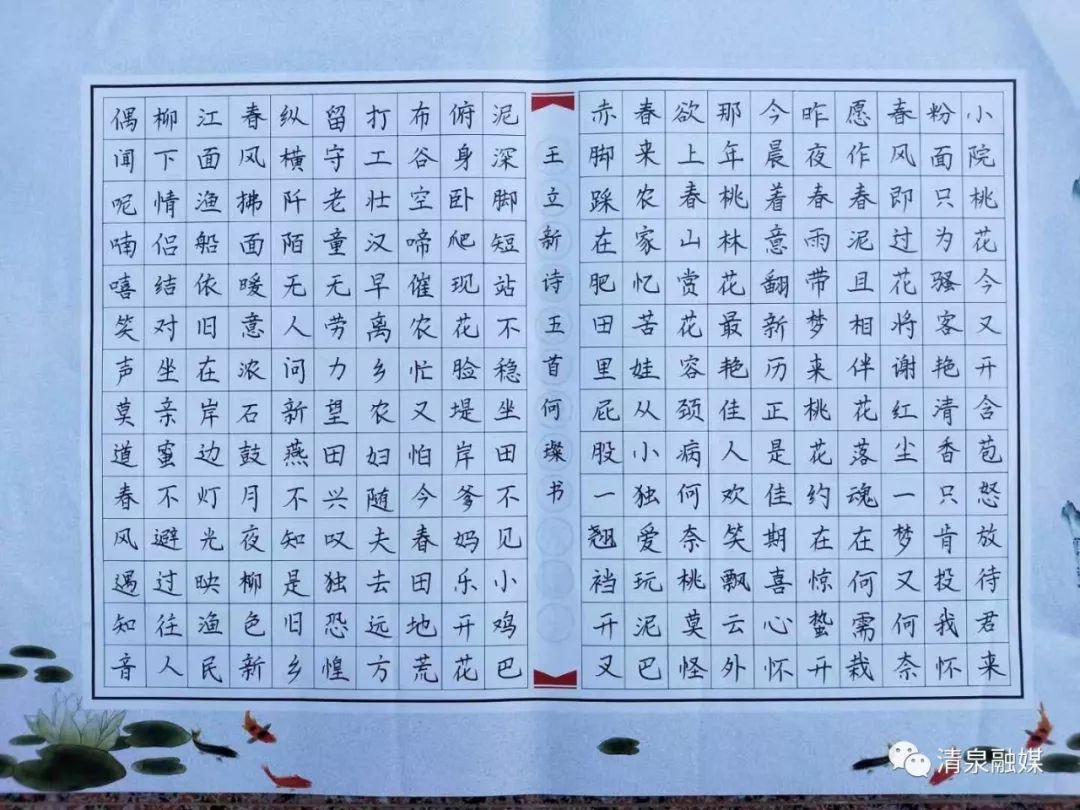 小院桃花今又开含苞怒放待君来
粉面只为骚客艳清香只肯投我怀
春风即过花将谢红尘一梦又何奈
愿作春泥且相伴花落魂在何需栽
昨夜春雨带梦来桃花约在惊蛰开
今晨着意翻新历正是佳期喜心怀
那年桃林花最艳佳人欢笑飘云外
欲上春山赏花容颈病何奈桃莫怪
春来农家忆苦娃从小独爱玩泥巴
赤脚踩在肥田里屁股一翘裆开叉
王立新诗五首何璨书
泥深脚短站不稳坐田不见小鸡巴
俯身卧爬现花脸堤岸爹妈乐开花
布谷空啼催农忙又怕今春田地荒
打工壮汉早离乡农妇随夫去远方
留守老童无劳力望田兴叹独恐惶
纵横阡陌无人问新燕不知是旧乡
春风拂面暖意浓石鼓月夜柳色新
江面渔船依旧在岸边灯光映渔民
柳下情侣结对坐亲蜜不避过往人
偶闻呢喃嘻笑声莫道春风遇知音
清泉融媒